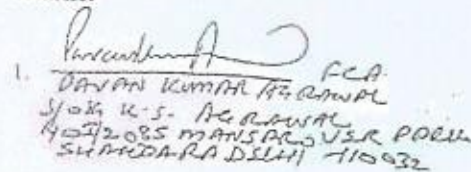 1. FCA
PAVAN KUMAR AGRAWAL
S/o Sh K-S- AGRAWAL
MANSAROVER PARK
SHAHDARA DELHI 110032